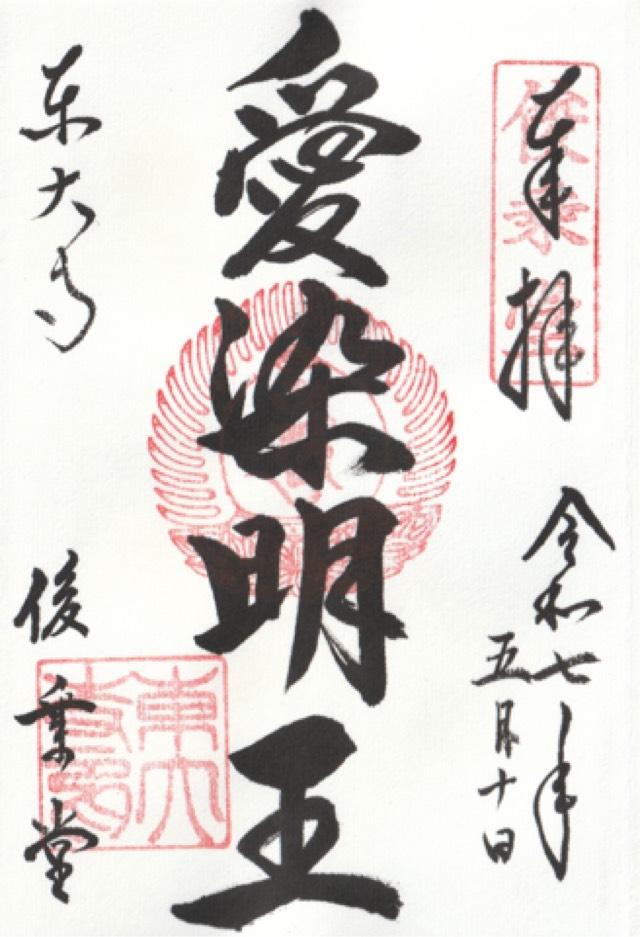 奉拝
令和七年
五月十日
愛染明王
東大寺
俊乗堂
俊乗堂
東大寺